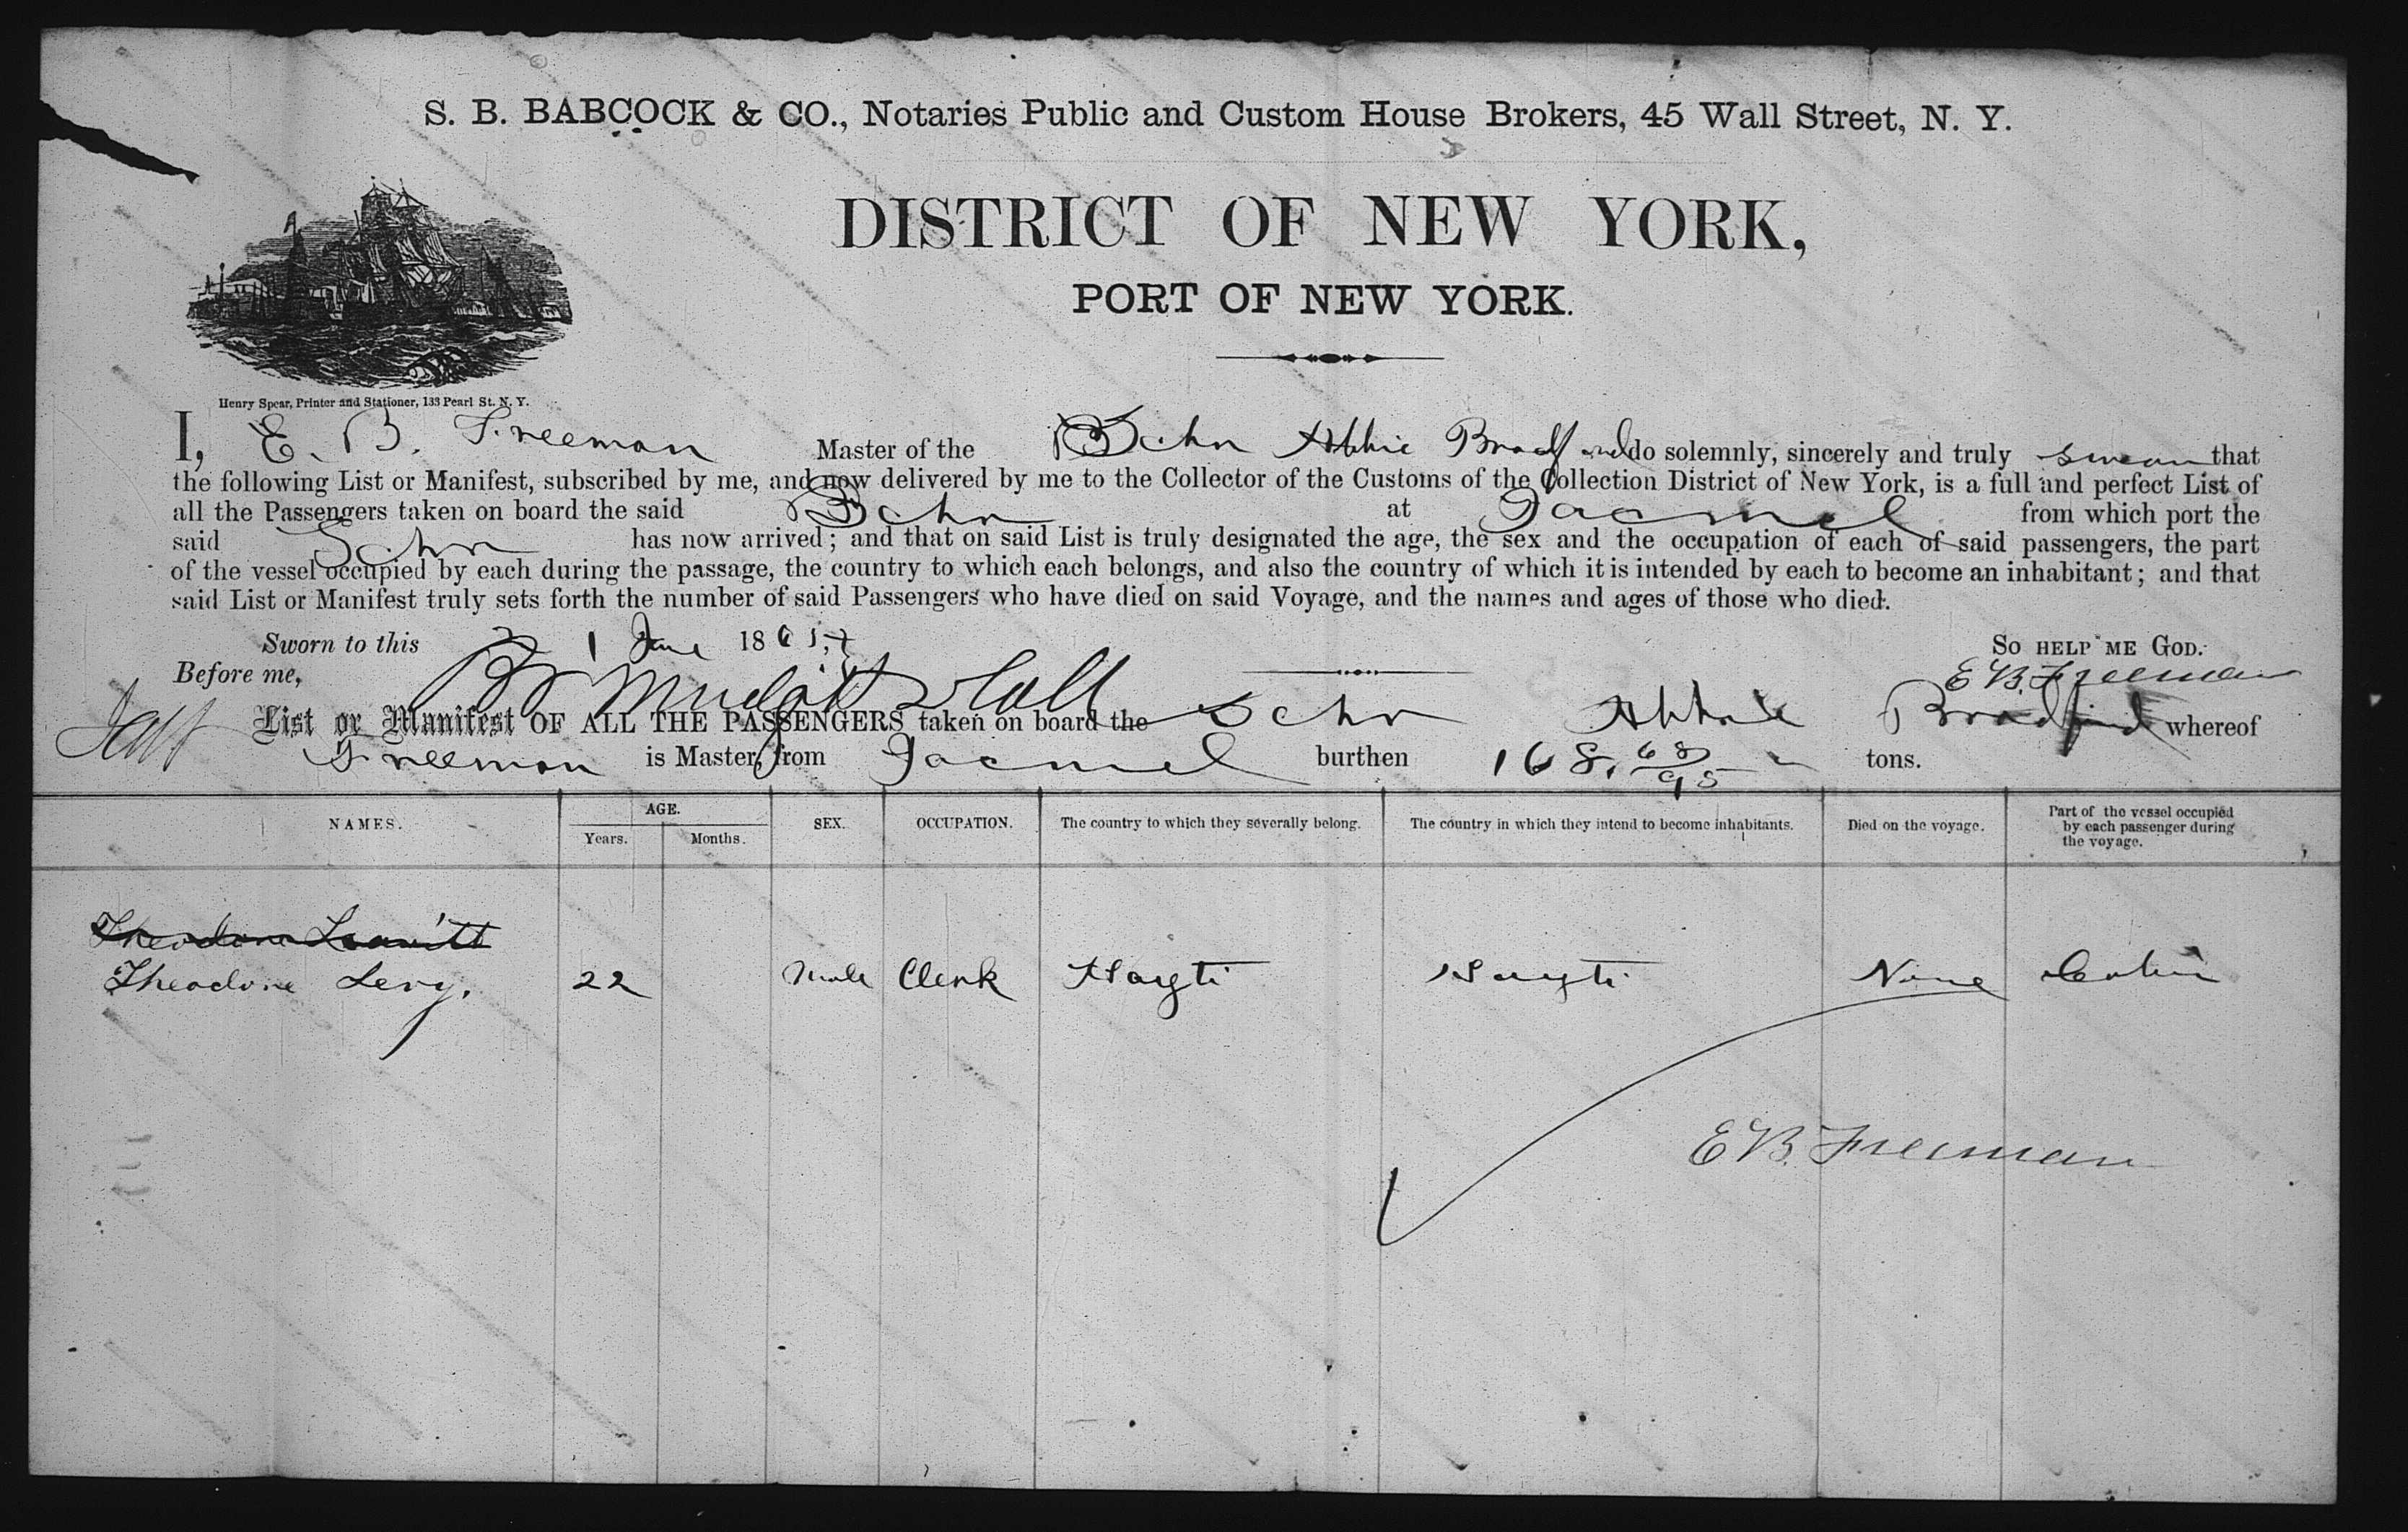 S. B. BABCOCK & CO., Notaries Public and Custom House Brokers, 45 Wall Street, N. Y.
DISTRICT OF NEW YORK,
PORT OF NEW YORK.
Henry Spear, Printer and Stationer, 133 Pearl St. N. Y.
I, E. B. Freeman Master of the Schr Abbie Bradford do solemnly, sincerely and truly swear that
the following List or Manifest, subscribed by me, and now delivered by me to the Collector of the Customs of the Collection District of New York, is a full and perfect List of
all the Passengers taken on board the said Schr at Jacmel from which port the
said Schr has now arrived; and that on said List is truly designated the age, the sex and the occupation of each of said passengers, the part
of the vessel occupied by each during the passage, the country to which each belongs, and also the country of which it is intended by each to become an inhabitant; and that
said List or Manifest truly sets forth the number of said Passengers who have died on said Voyage, and the names and ages of those who died.
Sworn to this 1 June 1865 SO HELP ME GOD.
Before me, E B. Freeman
List or Manifest OF ALL THE PASSENGERS taken on board the Schr Abbie Bradford whereof
Freeman is Master, from Jacmel burthen 168. 68/95 tons.
NAMES. AGE. Years. Months. SEX. OCCUPATION. The country to which they severally belong. The country in which they intend to become inhabitants. Died on the voyage. Part of the vessel occupied by each passenger during the voyage.
Theodore Leavitt
Theodore Levy. 22 Male Clerk Hayti Hayti None Cabin
E B. Freeman